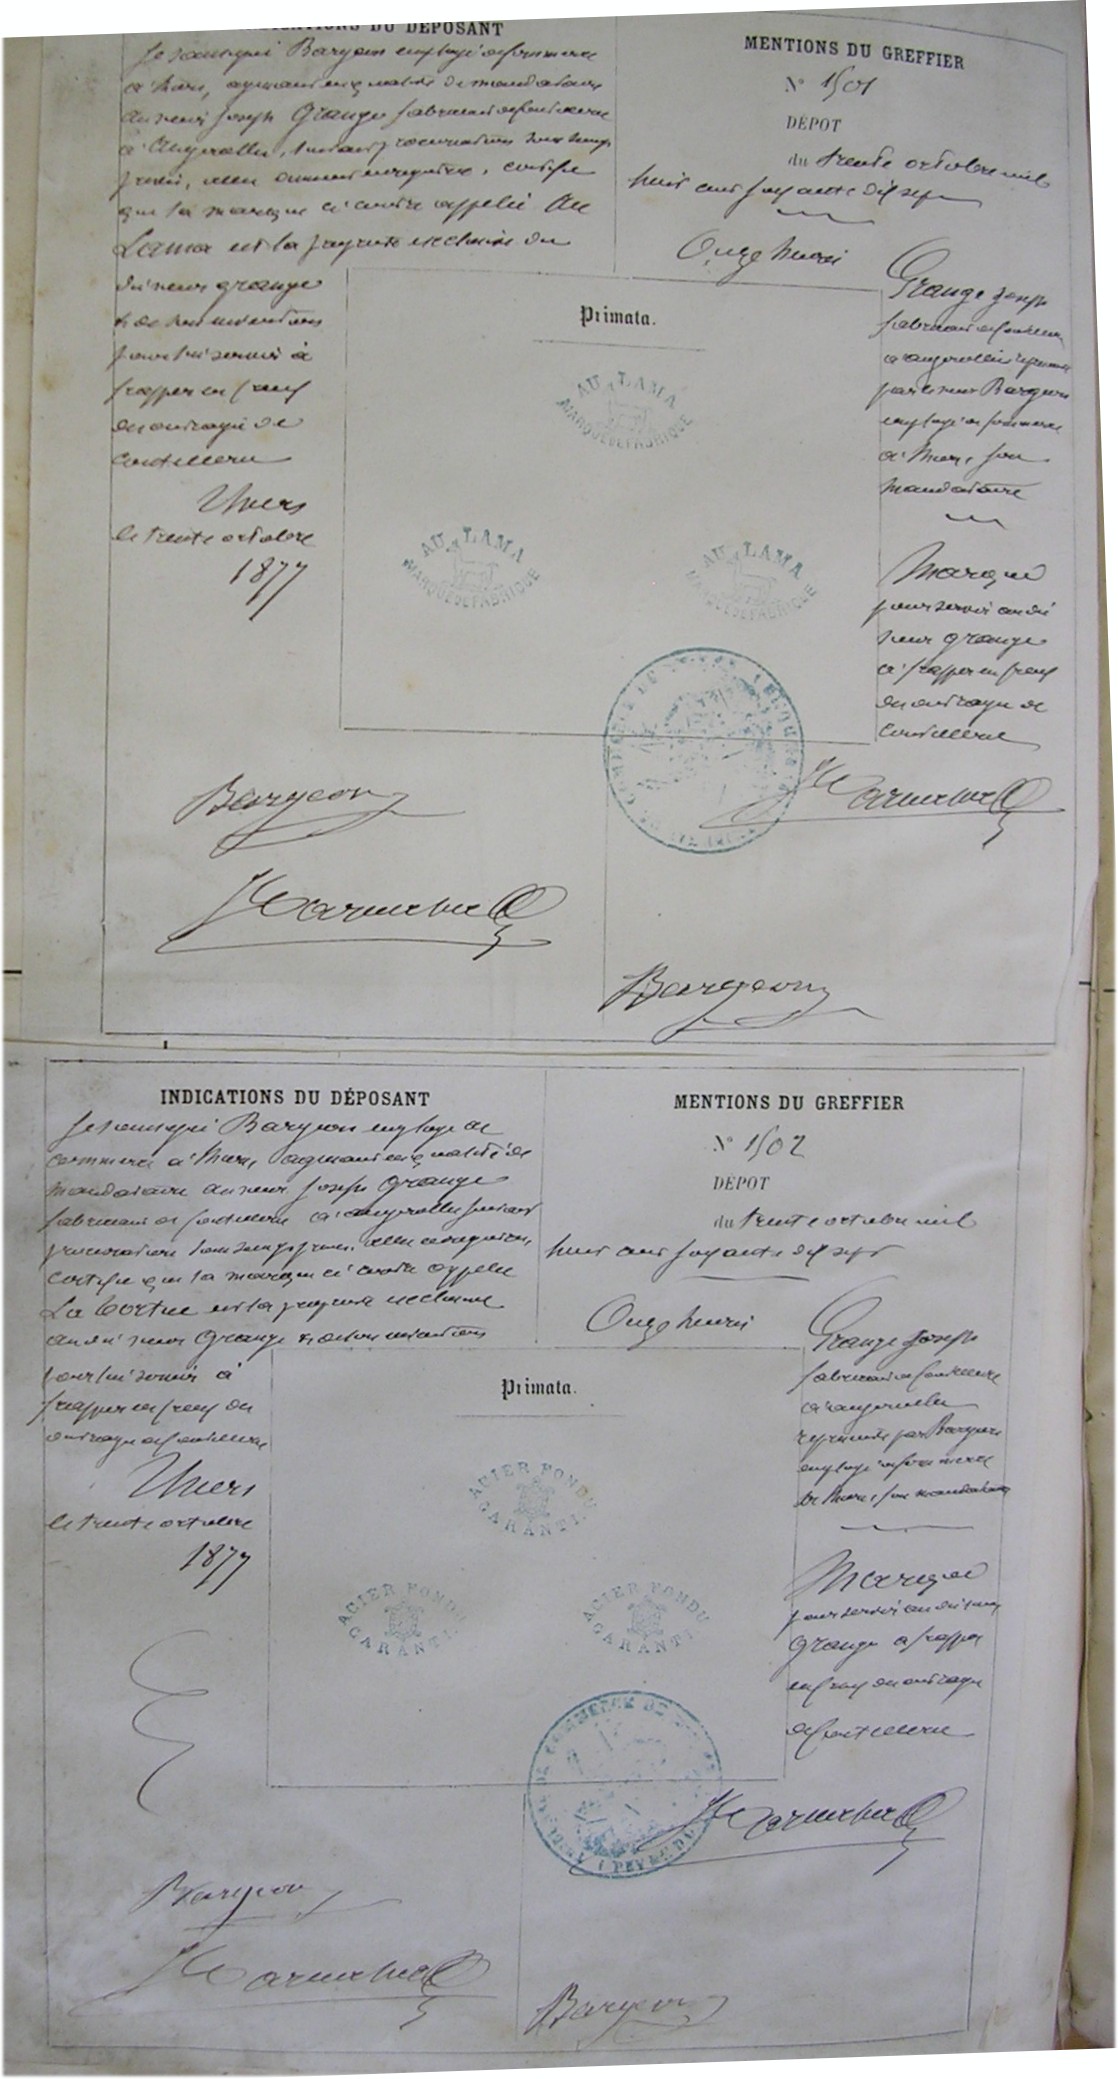 INDICATIONS DU DÉPOSANT
Je soussigné Bargeon employé de commerce
à Thiers, agissant en qualité de mandataire
du sieur Joseph Grange fabricant de coutellerie
à Augerolles, suivant procuration sous seing
privé, enregistrée, certifie
que la marque ci contre appelée Au
Lama est la propriété exclusive du
dit sieur Grange
pour lui servir à
frapper
ouvrages de
coutellerie
Thiers
le trente octobre
1877
Bargeon
MENTIONS DU GREFFIER
N° 1501
DÉPOT
du trente octobre mil
huit cent soixante dix sept
Onze heures
Grange Joseph
fabricant de coutellerie
à Augerolles représenté
par le sieur Bargeon
employé de commerce
à Thiers, son
mandataire
Marque
pour servir au dit
sieur Grange
à frapper
ouvrages de
coutellerie
Primata.
AU LAMA
MARQUE DE FABRIQUE
AU LAMA
MARQUE DE FABRIQUE
AU LAMA
MARQUE DE FABRIQUE
Bargeon
INDICATIONS DU DÉPOSANT
Je soussigné Bargeon employé de
commerce à Thiers, agissant en qualité de
mandataire du sieur Joseph Grange
fabricant de coutellerie à Augerolles suivant
procuration sous seing privé, enregistrée,
certifie que la marque ci contre appelée
La Tortue est la propriété exclusive
du dit sieur Grange
pour lui servir à
frapper
ouvrages de coutellerie
Thiers
le trente octobre
1877
Bargeon
MENTIONS DU GREFFIER
N° 1502
DÉPOT
du trente octobre mil
huit cent soixante dix sept
Onze heures
Grange Joseph
fabricant de coutellerie
à Augerolles
représenté par Bargeon
employé de commerce
à Thiers, son mandataire
Marque
pour servir au dit sieur
Grange à frapper
ouvrages
de coutellerie
Primata.
ACIER FONDU
GARANTI.
ACIER FONDU
GARANTI.
ACIER FONDU
GARANTI.
COMMERCE DE
Bargeon